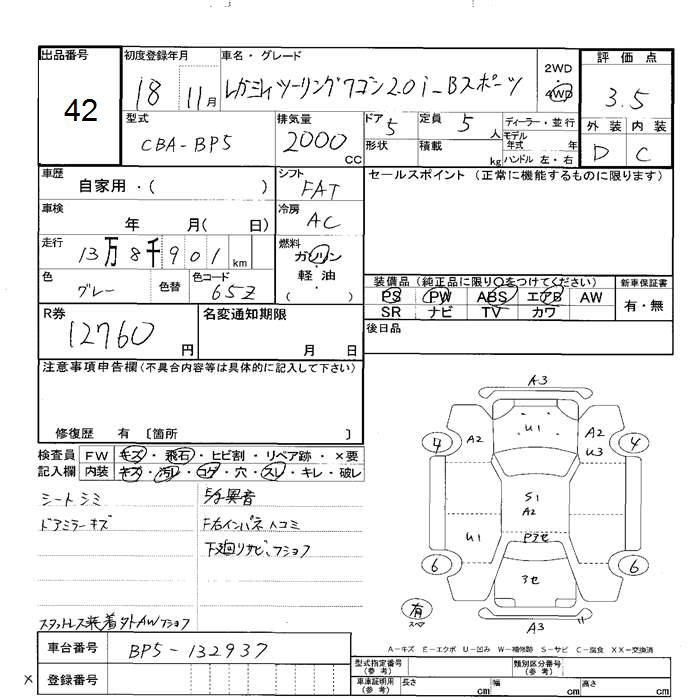 出品番号
42
初度登録年月
18 11月
車名・グレード
レガシィツーリングワゴン2.0i-Bスポーツ
2WD
・
4WD
評価点
3.5
外装 内装
D C
型式
CBA-BP5
排気量
2000
CC
ドア 5
定員 5 人
形状
積載 kg
ディーラー・並行
モデル年式 年
ハンドル 左・右
車歴
自家用・( )
シフト
FAT
セールスポイント (正常に機能するものに限ります)
車検
年 月( 日)
冷房
AC
走行
13万8千901km
燃料
ガソリン
・
軽油
( )
色
グレー
色替
色コード
65Z
装備品 (純正品に限り○をつけてください)
PS PW ABS エアB AW
SR ナビ TV カワ
新車保証書
有・無
R券
12760
円
名変通知期限
月 日
後日品
注意事項申告欄(不具合内容等は具体的に記入して下さい)
修復歴 有 〔箇所 〕
検査員
記入欄
FW キズ・飛石・ヒビ割・リペア跡・×要
内装 キズ・汚れ・コゲ・穴・スレ・キレ・破レ
シートシミ
ドアミラーキズ
スタットレス装着外AWフショク
異音
F右インパネ凹コミ
下廻リサビ、フショク
A3
U1
A2
A2
U3
4
4
S1
A2
U1
Pアセ
アセ
6
6
有
スペア
A3
A-キズ E-エクボ U-凹み W-補修跡 S-サビ C-腐食 XX-交換済
車台番号
BP5-132937
×
登録番号
型式指定番号
(参考)
類別区分番号
(参考)
車庫証明用
(参考)
長さ cm
幅 cm
高さ cm